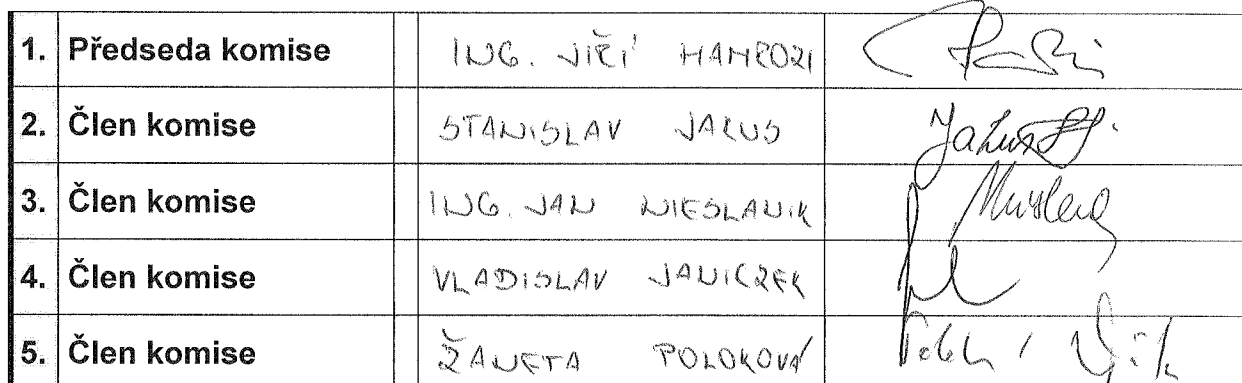 1. Předseda komise ING. JIŘÍ HAMROZI
2. Člen komise STANISLAV JAKUS
3. Člen komise ING. JAN NIESLANIK
4. Člen komise VLADISLAV JANICZEK
5. Člen komise ŽANETA POLOKOVÁ